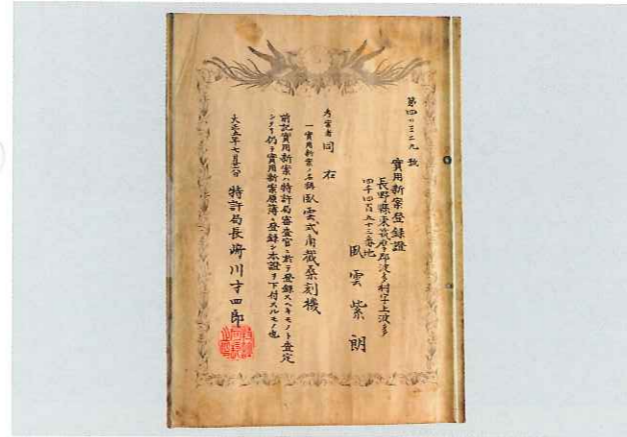 第四〇三二九號
實用新案登錄證
長野縣東筑摩郡波多村字上波多
四千四百五十二番地
臥雲紫朗
考案者 同右
一實用新案ノ名稱 臥雲式自裁桑刻機
前記實用新案ハ特許局審査官ニ於テ登錄スヘキモノト査定
シタリ仍テ實用新案原簿ニ登錄シ本證ヲ下付スルモノ也
大正五年七月 特許局長 崎川才四郎